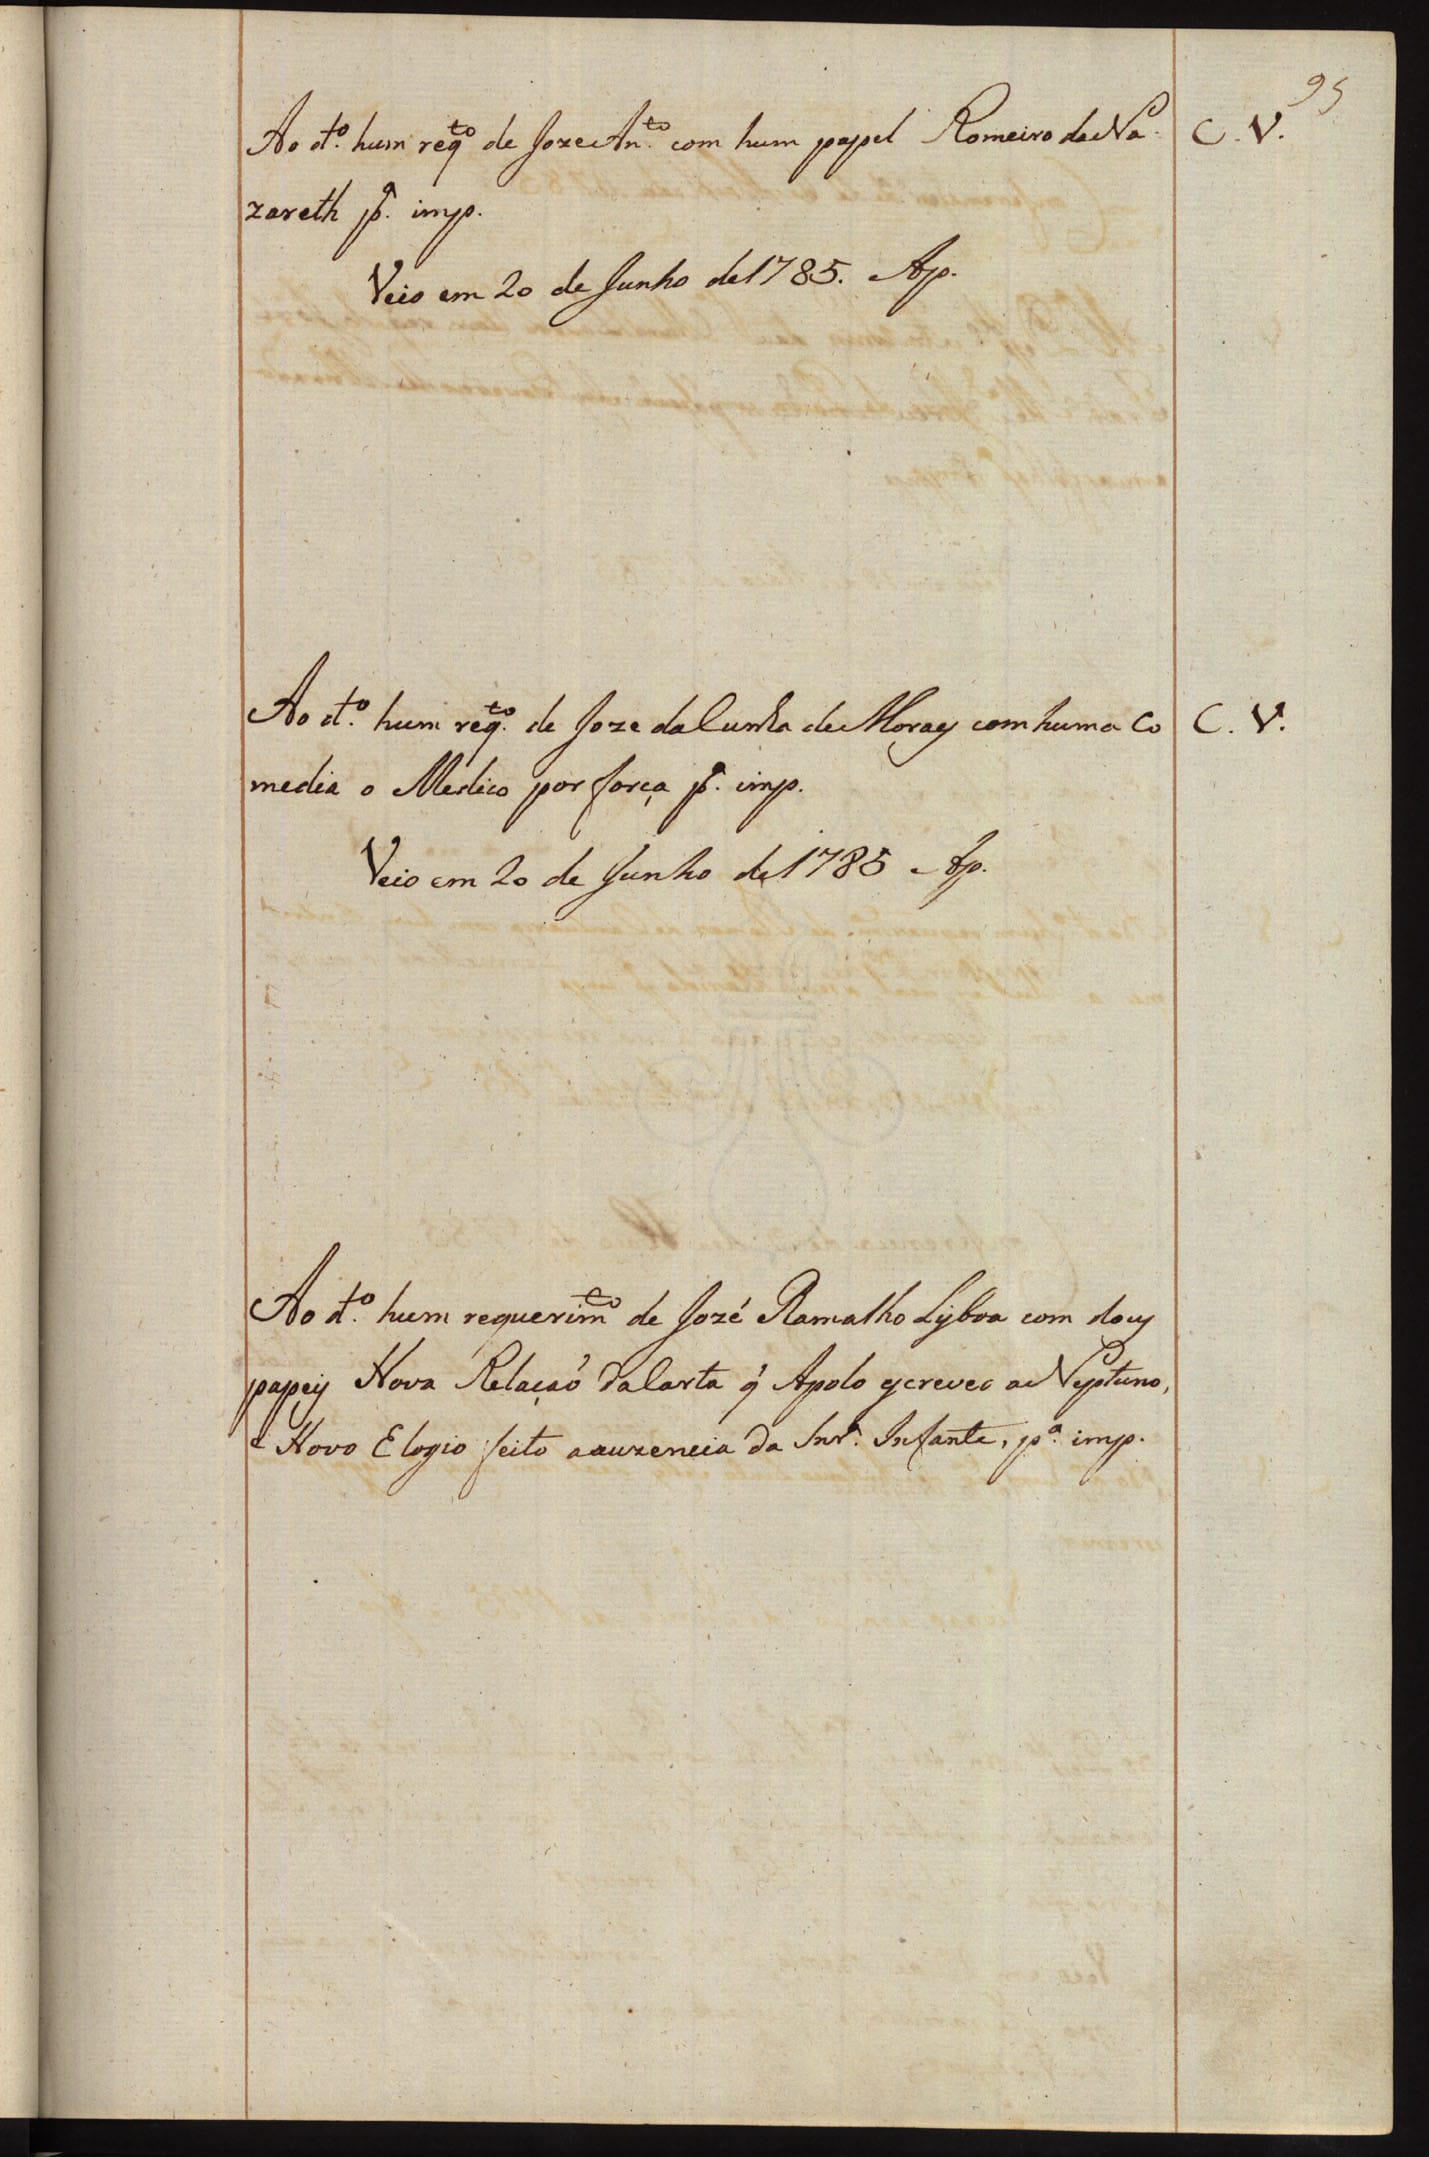 95
Ao dt.º hum reqᵗᵒ de Joze Anᵗᵒ. com hum papel Romeiro de Na- C. V.
zareth pª. imp.
Veio em 20 de Junho de 1785. Ap.
Ao dt.º hum reqᵗᵒ. de Joze da Cunha de Moraes com huma Co C. V.
media o Medico por força pª. imp.
Veio em 20 de Junho de 1785 Ap.
Ao dt.º hum requerimᵗᵒ de Jozé Ramalho Lisboa com dous
papeis Nova Relaçaõ da Carta q̃ Apolo escreveo a Neptuno,
e Novo Elogio feito a auzencia da Snrª. Infante, pª. imp.